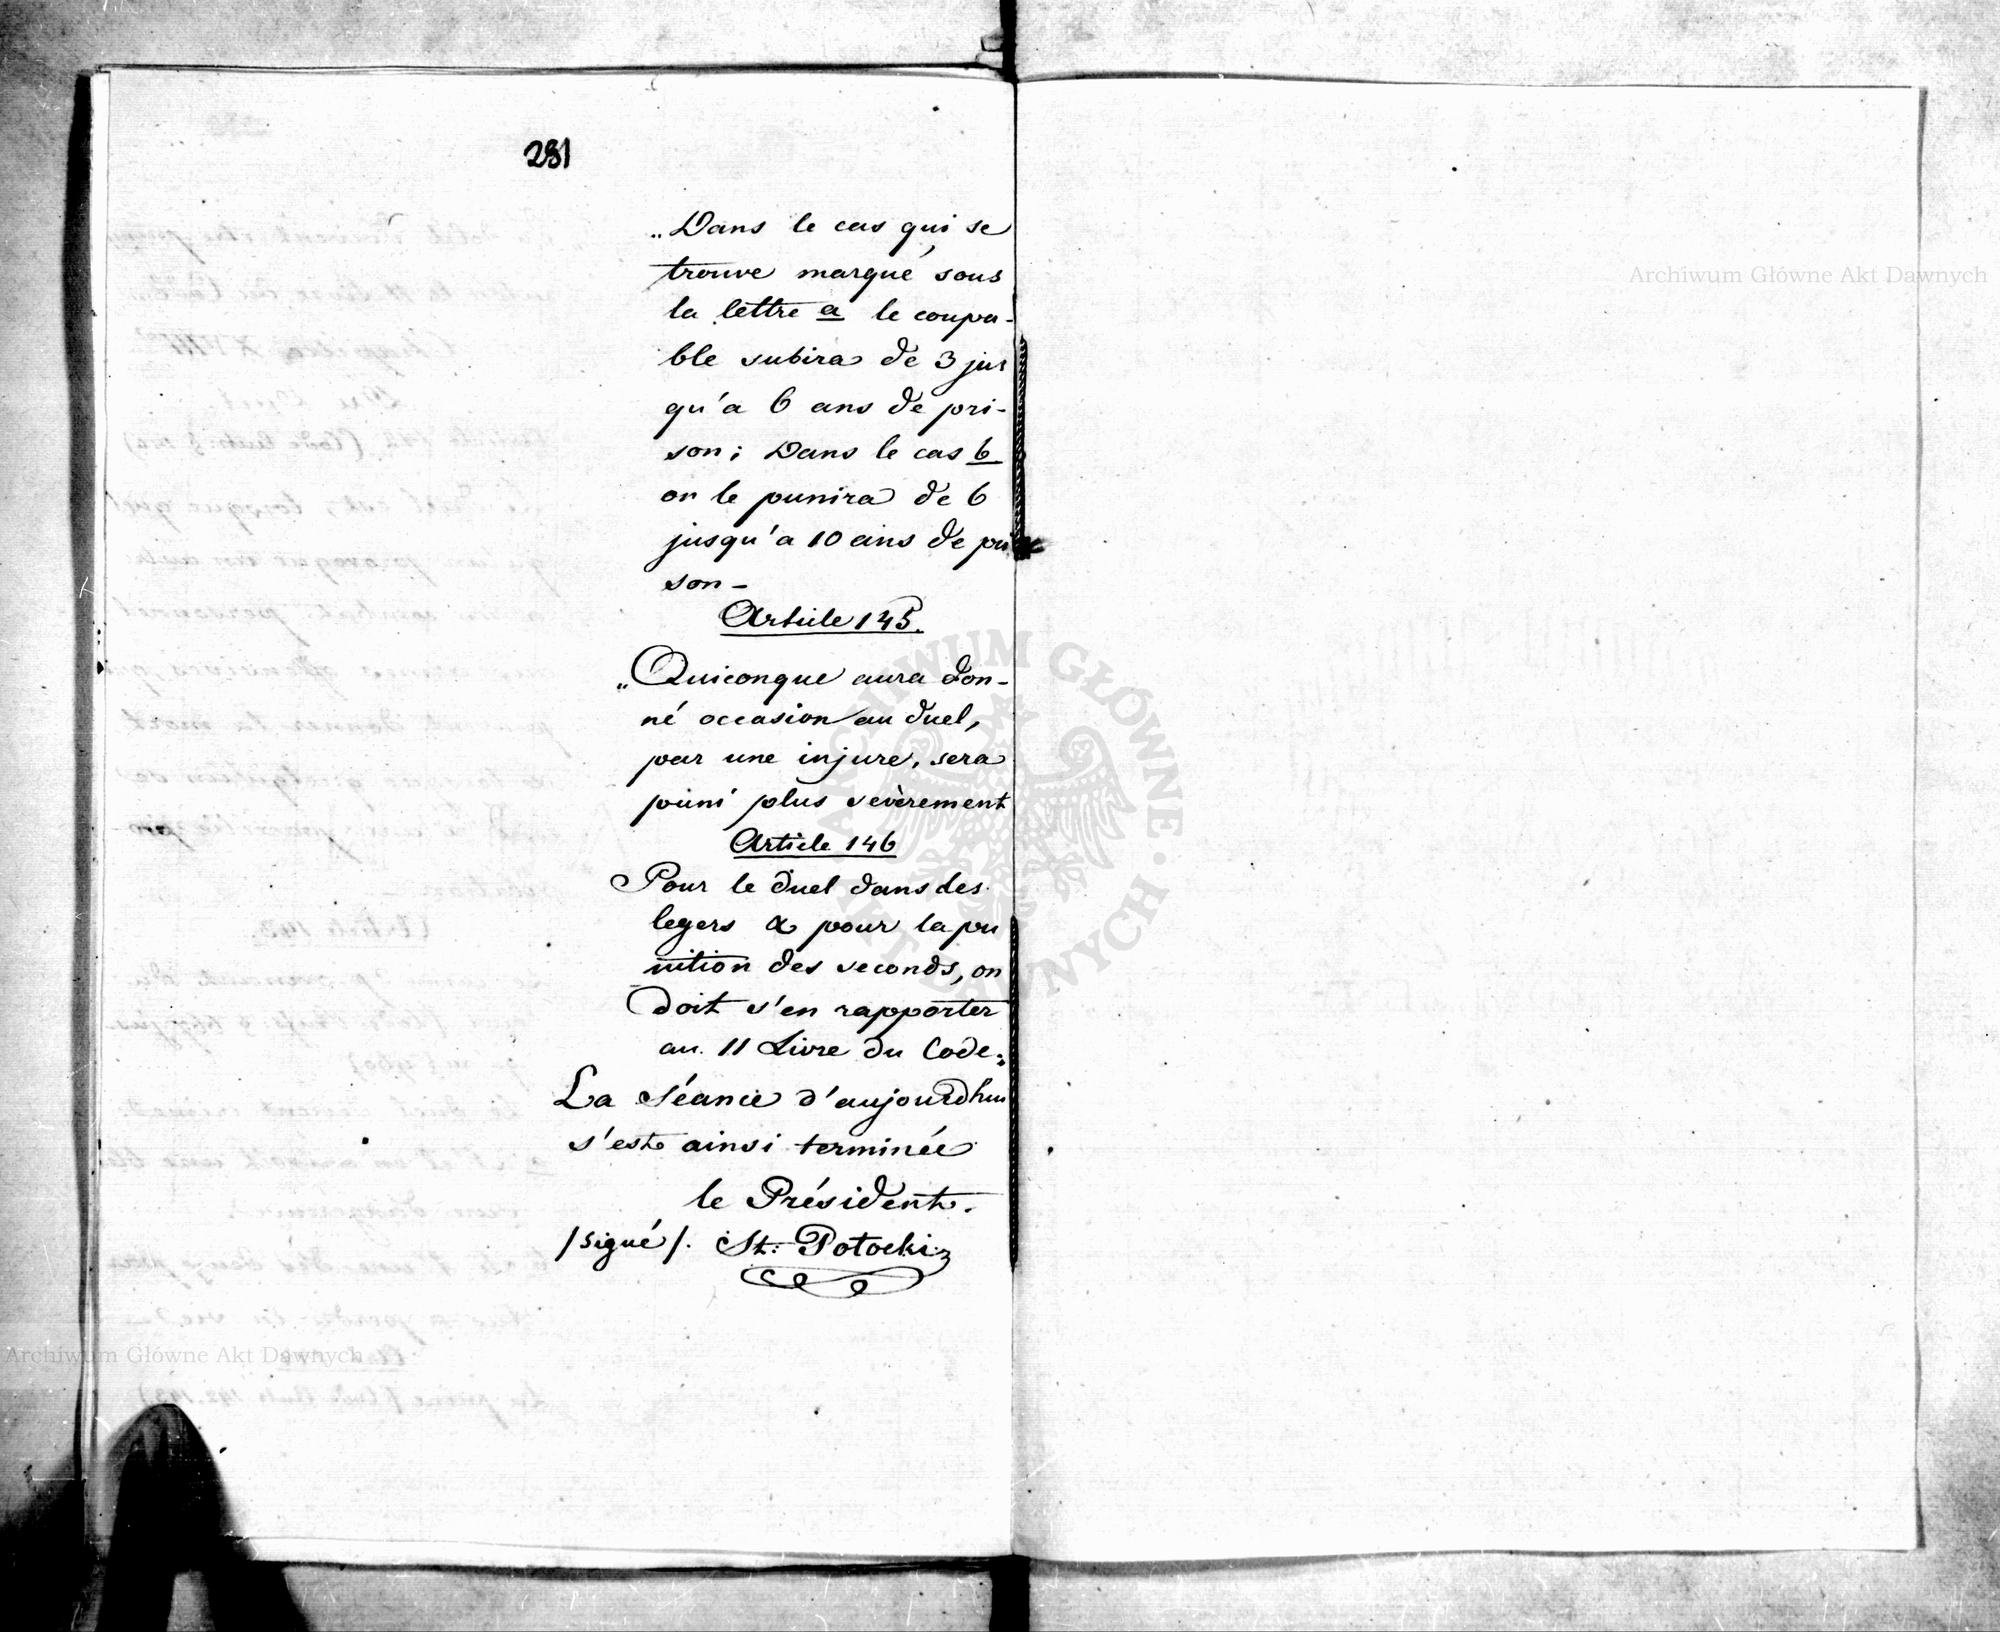 281
„Dans le cas qui se
trouve marqué sous
la lettre a le coupa-
ble subira de 3 jus
qu'a 6 ans de pri-
son; Dans le cas b
on le punira de 6
jusqu'a 10 ans de pri
son-
Article 145.
„Quiconque aura don-
né occasion au duel,
par une injure, sera
puni plus sevèrement
Article 146
Pour le duel dans des
legers & pour la pu
nition des seconds, on
doit s'en rapporter
au 11 Livre du Code„
La Séance d'aujourdhui
s'est ainsi terminée
le Président.
/signé/. St: Potocki
Archiwum Główne Akt Dawnych
Archiwum Główne Akt Dawnych
ARCHIWUM GŁÓWNE AKT DAWNYCH